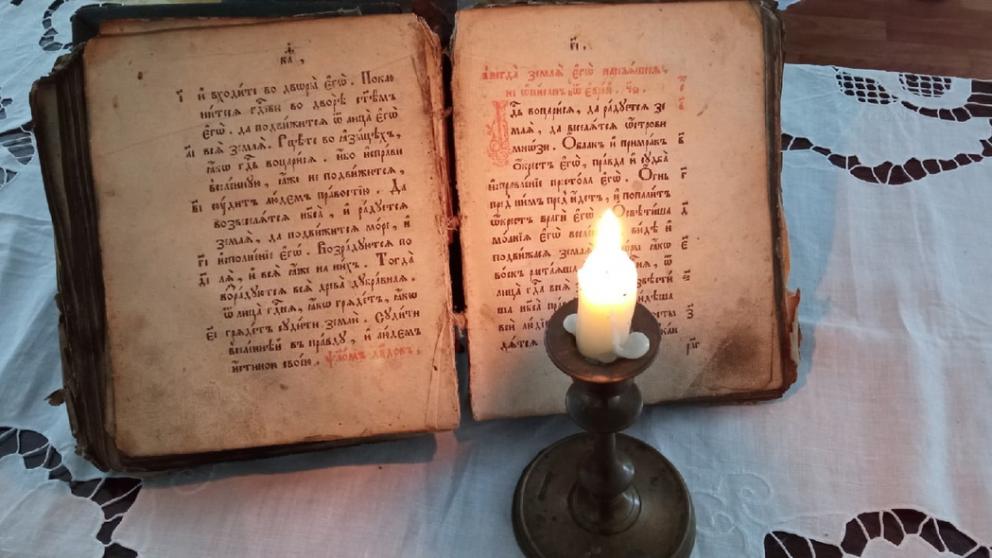 к҃а,
і҃ и҆ входи́те во дворы̀ є҆гѡ̀. Покло
ни́тесѧ гдⷭ҇ви во дворѣ̀ ст҃ѣмъ
є҆гѡ̀. да подви́житсѧ ѿ лица̀ є҆гѡ̀
а҃і всѧ̀ землѧ̀. Рцѣ́те во ꙗ҆зы́цѣхъ,
ꙗ҆́кѡ гдⷭ҇ь воцари́сѧ. и҆́бо и҆спра́ви
вселе́ннꙋю, ꙗ҆́же не подви́житсѧ,
в҃і сꙋ́дитъ лю́демъ пра́востїю. Да
возвеселѧ́тсѧ нб҃са̀, и҆ ра́дꙋетсѧ
землѧ̀, да подви́житсѧ мо́ре, и҆
г҃і и҆сполне́нїе є҆гѡ̀. Возра́дꙋютсѧ по
д҃і лѧ̀, и҆ всѧ̀ ꙗ҆́же на ни́хъ. Тогда̀
возра́дꙋютсѧ всѧ̀ древа̀ дꙋбра́внаѧ.
ѿ лица̀ гдⷭ҇нѧ, ꙗ҆́кѡ грѧде́тъ, ꙗ҆́кѡ
є҃і грѧде́тъ сꙋди́ти землѝ. Сꙋди́ти
вселе́ннѣй въ пра́вдꙋ, и҆ лю́демъ
и҆́стиною свое́ю. ѱало́мъ дв҃довъ,
г҃і.
є҆гда̀ землѧ̀ є҆гѡ̀
Гдⷭ҇ь воцари́сѧ, да ра́дꙋетсѧ зе
млѧ̀, да веселѧ́тсѧ ѻ҆́строви
мно́зи. Ѻ҆́блакъ и҆ примра́къ в҃
ѡ҆́крестъ є҆гѡ̀, пра́вда и҆ сꙋдба̀
и҆справле́нїе пр҇то́ла є҆гѡ̀. Ѻ҆́гнь г҃
пред̾ ни́мъ пред̾и́детъ, и҆ попали́тъ
ѡ҆́крестъ врагѝ є҆гѡ̀. Ѡ҆свѣти́ша д҃
мо́лнїѧ є҆гѡ̀ ви́дѣ и҆
подви́жасѧ землѧ̀ ꙗ҆́кѡ є҃
во́скъ раста́ѧша ѿ
лица̀ гдⷭ҇а всеѧ̀
ша нб҃са̀
всѝ лю́дїе з҃